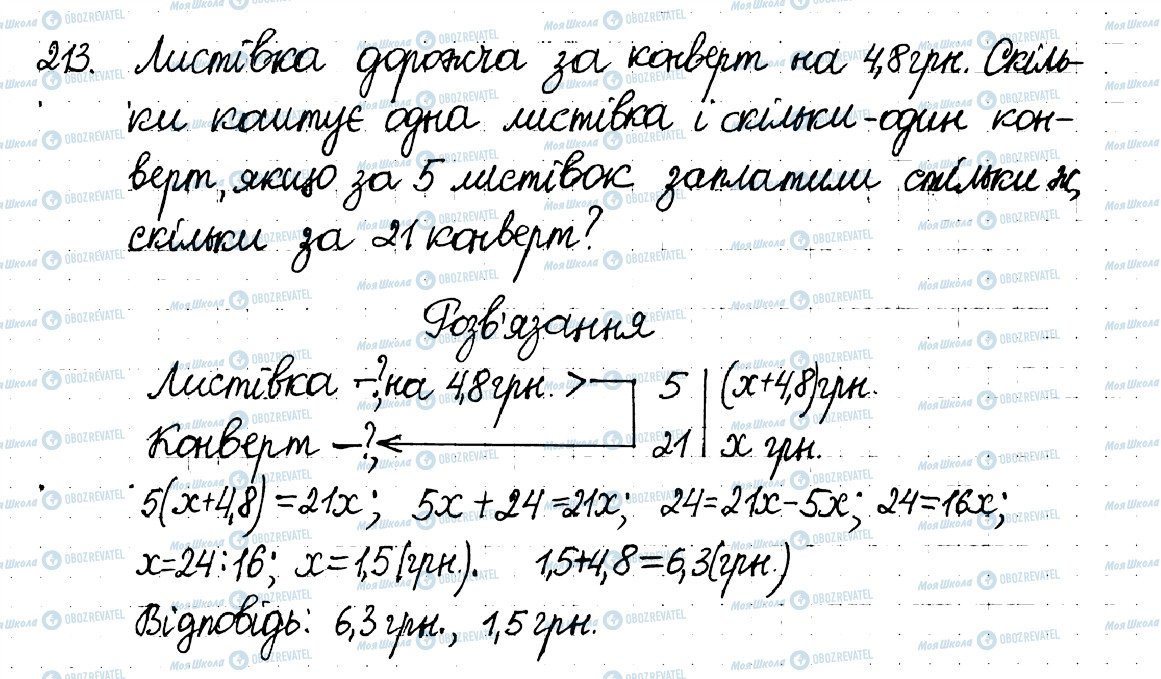 213. Листівка дорожча за конверт на 4,8 грн. Скіль-
ки коштує одна листівка і скільки - один кон-
верт, якщо за 5 листівок заплатили стільки ж,
скільки за 21 конверт?
Розв'язання
Листівка –?, на 4,8 грн. > 5 | (х+4,8) грн.
Конверт –?, 21 | х грн.
5(х+4,8) = 21х; 5х + 24 = 21х; 24 = 21х – 5х; 24 = 16х;
х = 24 : 16; х = 1,5 (грн.). 1,5 + 4,8 = 6,3 (грн.)
Відповідь: 6,3 грн., 1,5 грн.
МояШкола OBOZREVATEL